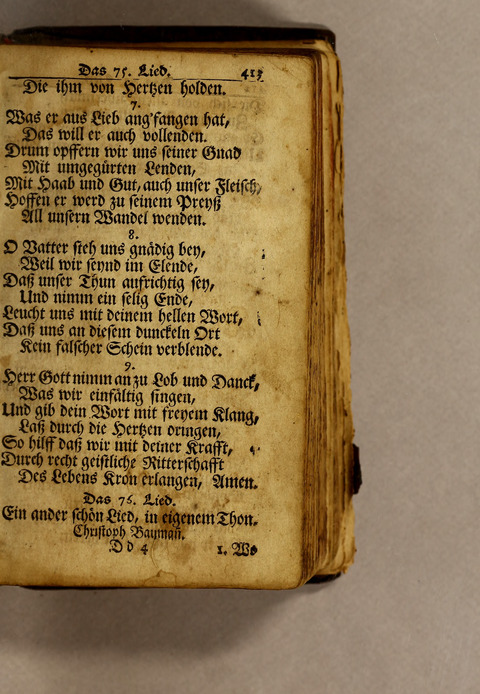 Das 75. Lied. 413
Die ihm von Hertzen holden.
7.
Was er aus Lieb ang'fangen hat,
Das will er auch vollenden.
Drum opffern wir uns seiner Gnad
Mit umgegürten Lenden,
Mit Haab und Gut, auch unser Fleisch,
Hoffen er werd zu seinem Preyß
All unsern Wandel wenden.
8.
O Vatter steh uns gnädig bey,
Weil wir seynd im Elende,
Daß unser Thun aufrichtig sey,
Und nimm ein selig Ende,
Leucht uns mit deinem hellen Wort,
Daß uns an diesem dunckeln Ort
Kein falscher Schein verblende.
9.
Herr Gott nimm an zu Lob und Danck,
Was wir einfältig singen,
Und gib dein Wort mit freyem Klang,
Laß durch die Hertzen dringen,
So hilff daß wir mit deiner Krafft,
Durch recht geistliche Ritterschafft
Des Lebens Kron erlangen, Amen.
Das 76. Lied.
Ein ander schön Lied, in eigenem Thon.
Christoph Bauman̄.
D d 4 1. Wo